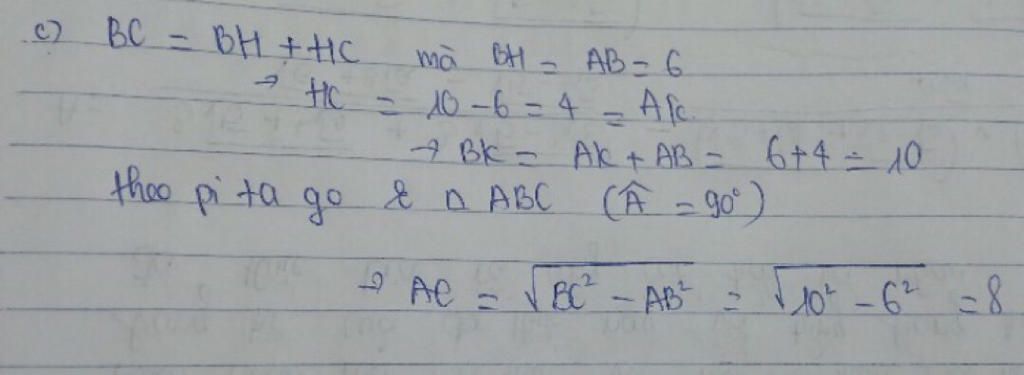 c) BC = BH + HC mà BH = AB = 6
→ HC = 10 - 6 = 4 = AK
→ BK = AK + AB = 6+4 = 10
theo pi ta go ở △ ABC (Â = 90°)
→ AC = √BC² - AB² = √10² - 6² = 8